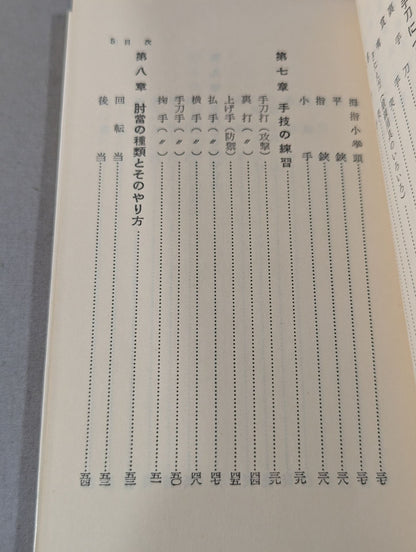 拇指小拳頭……三七
平鋏……三七
指鋏……三八
小手……三八
第七章 手技の練習……三九
手刀打(攻撃)……三九
裏打(〃)……四四
上げ手(防禦)……四五
払手(〃)……四七
横手(〃)……四八
手刀手(〃)……五〇
掬手(〃)……五一
第八章 肘當の種類とそのやり方……五三
回転当……五三
後当……五四
5 目次